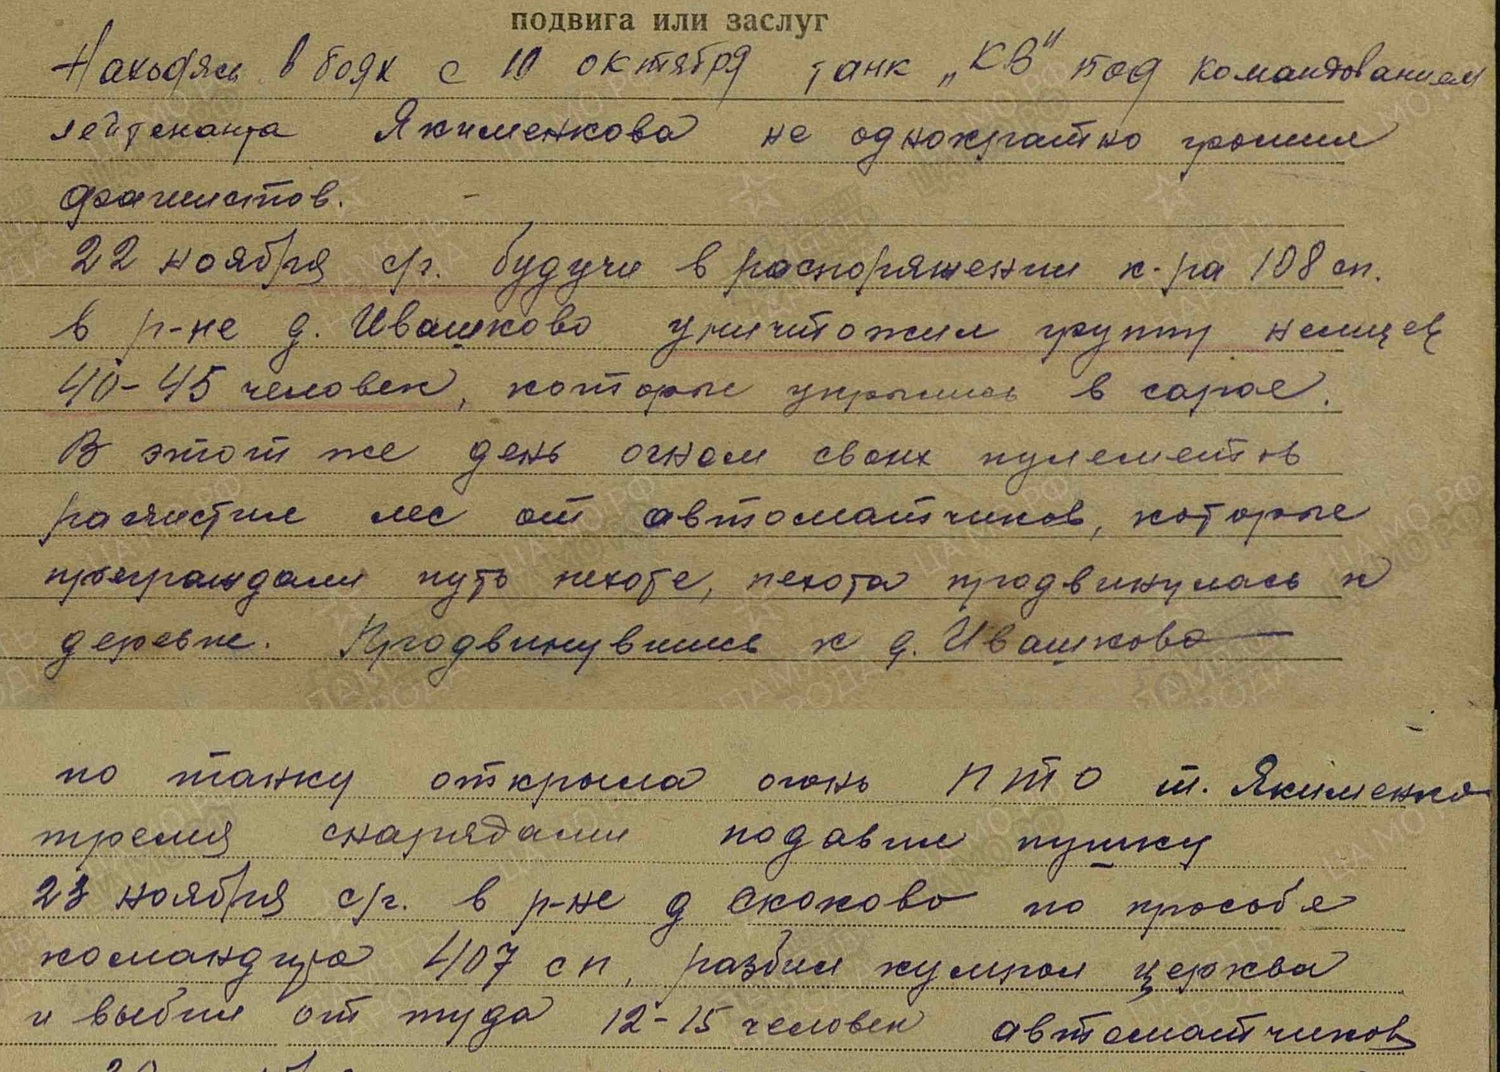 подвига или заслуг
Находясь в боях с 10 октября танк „КВ" под командованием
лейтенанта Якименкова не однократно громил
фашистов.
22 ноября с/г. будучи в распоряжении к-ра 108 сп.
в р-не д. Ивашково уничтожил группу немцев
40-45 человек, которые укрылись в сарае.
В этот же день огнем своих пулеметов
расчистил лес от автоматчиков, которые
преграждали путь пехоте, пехота продвинулась к
деревне. Продвинувшись к д. Ивашково
по танку открыла огонь ПТО т. Якименко
тремя снарядами подавил пушку
23 ноября с/г. в р-не д Скоково по прособе
командира 407 сп, разбил церква
и выбил от туда 12-15 человек автоматчиков